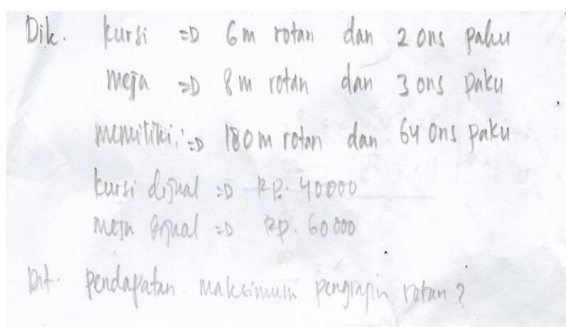 Dik. kursi => 6 m rotan dan 2 ons paku
meja => 8 m rotan dan 3 ons paku
memiliki => 180 m rotan dan 64 ons paku
kursi dijual => Rp. 40000
meja dijual => Rp. 60000
Dit. Pendapatan maksimum pengrajin rotan?